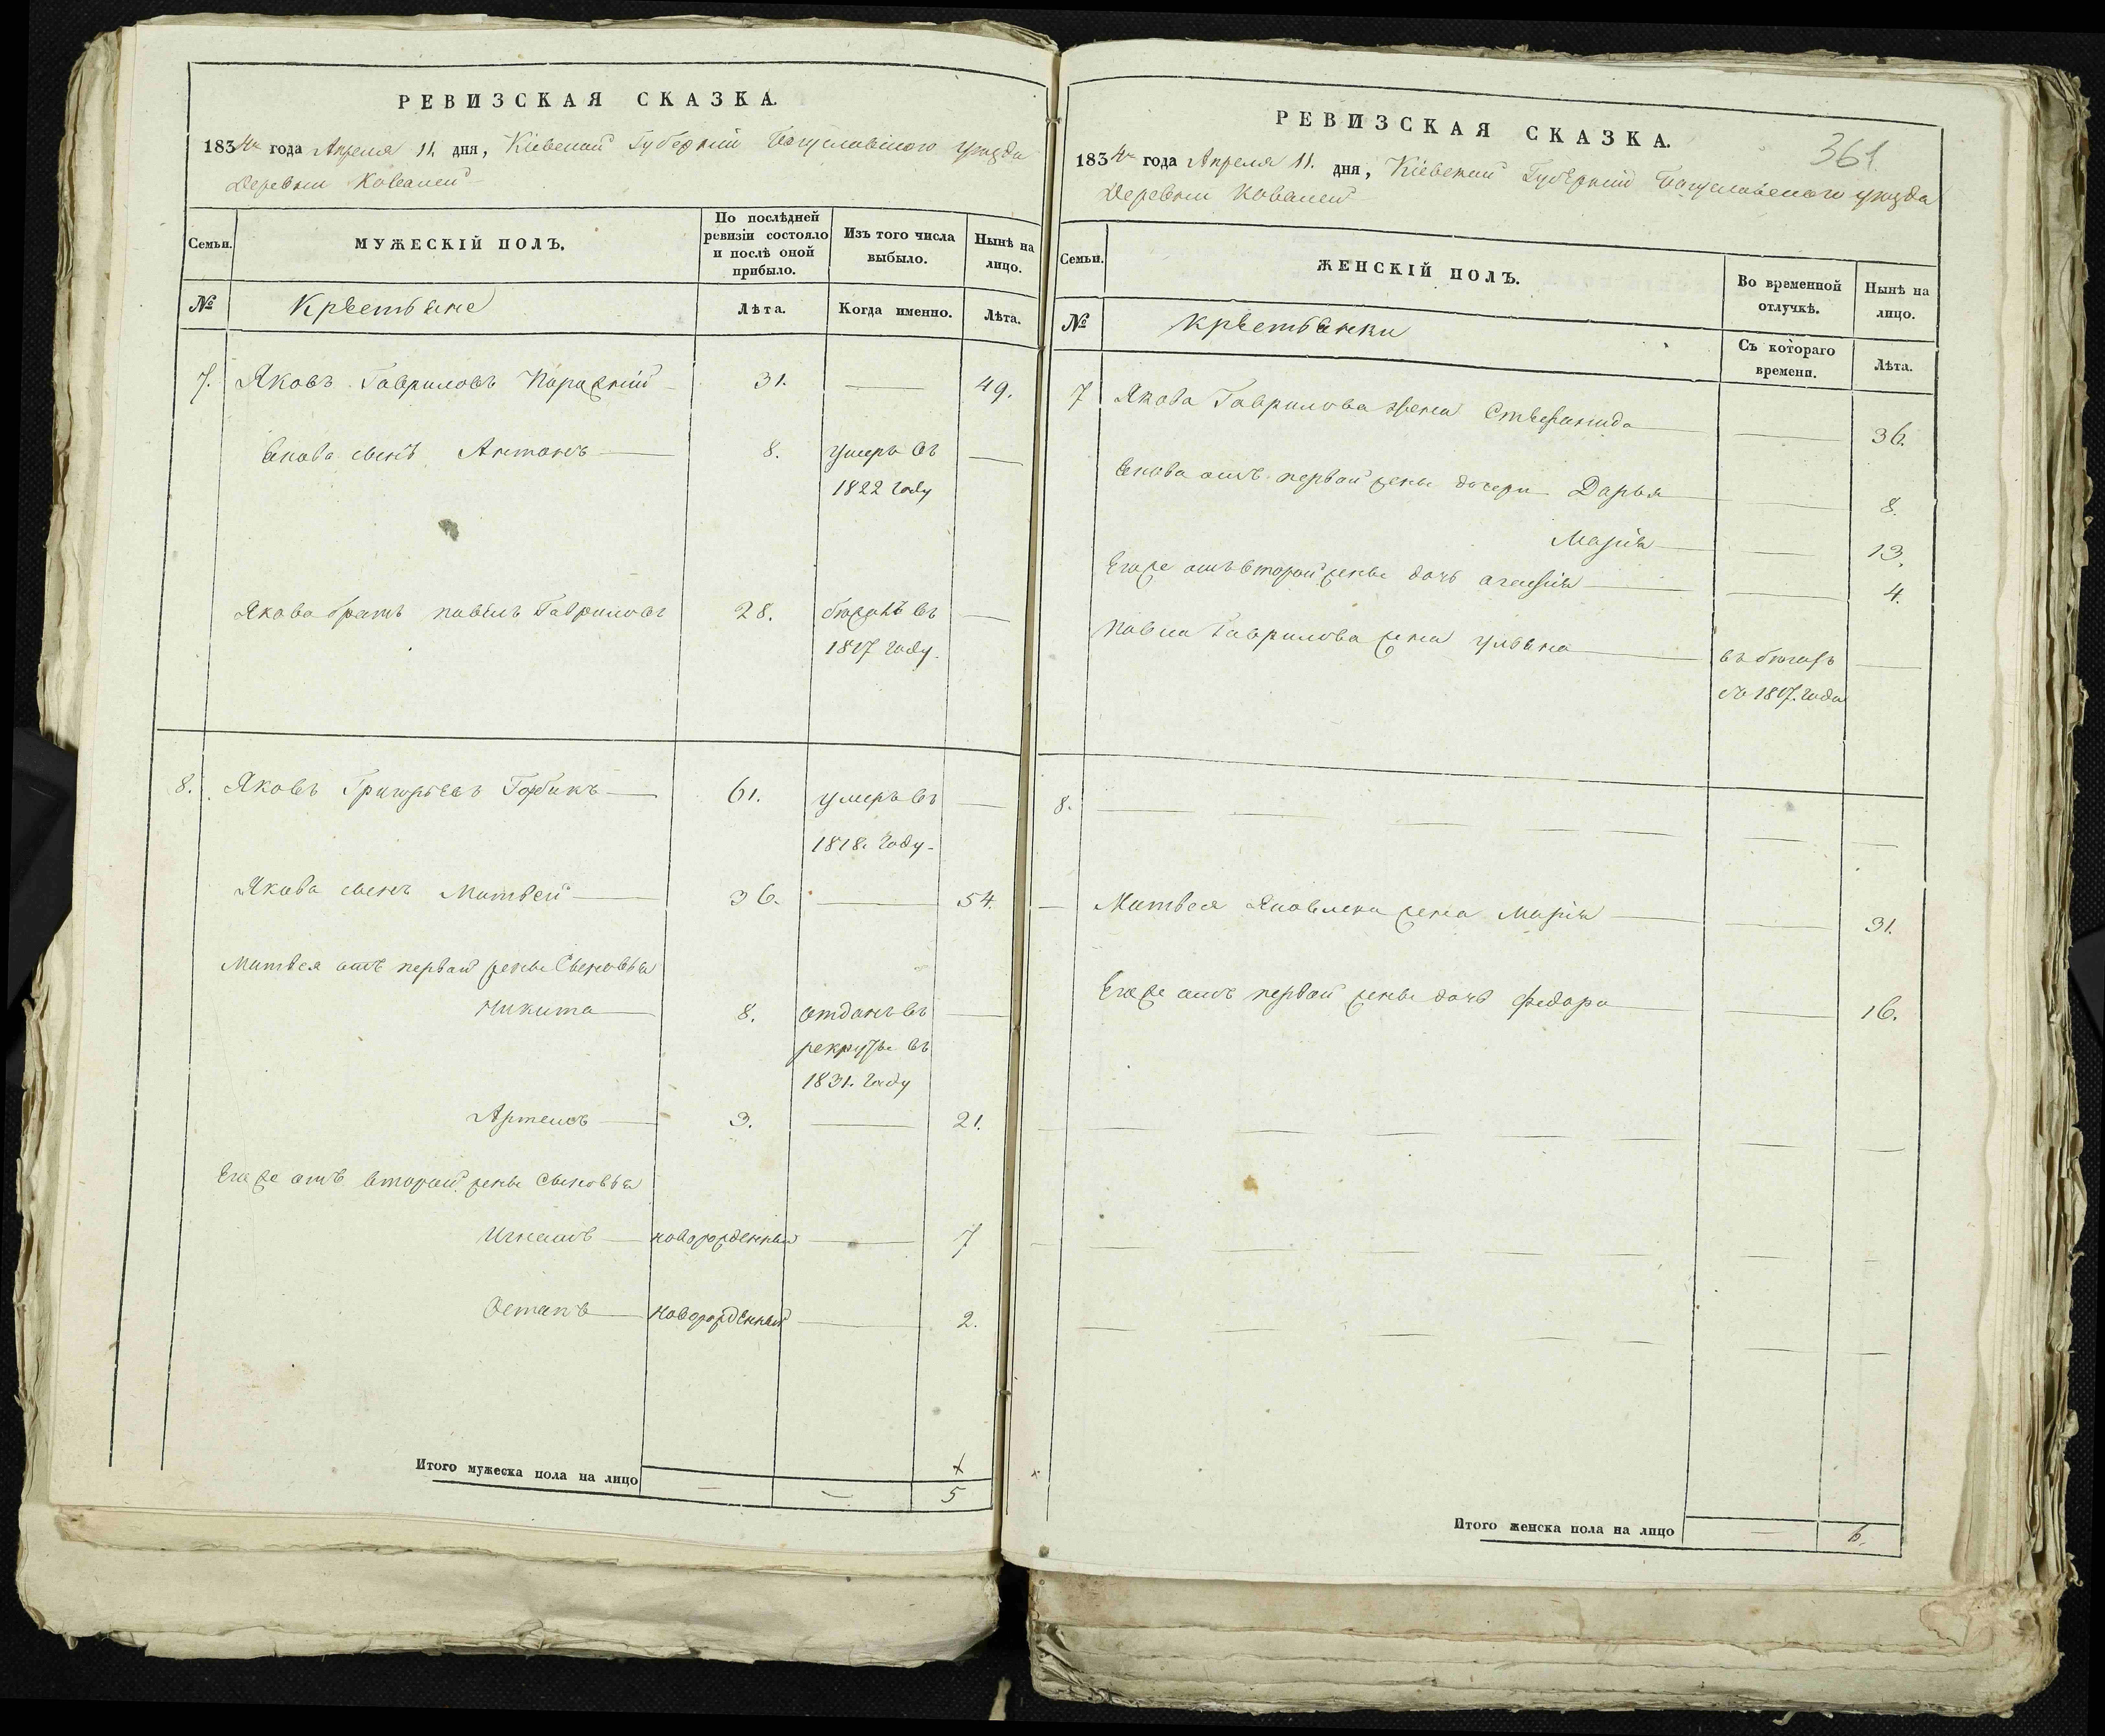 РЕВИЗСКАЯ СКАЗКА.
1834го года Апреля 11. дня, Кіевской Губерніи Богуславского уѣзда
Деревни Ковалей
Семьи.
МУЖЕСКІЙ ПОЛЪ.
По послѣдней ревизіи состояло и послѣ оной прибыло.
Изъ того числа выбыло.
Нынѣ на лицо.
№
Крестьяне
Лѣта.
Когда именно.
Лѣта.
7. Яковъ Гавриловъ 31. — 49.
Якова сынъ Антонъ 8. умеръ въ —
1822 году
Якова братъ павелъ Гавриловъ 28. бежалъ въ —
1817 году.
8. Яковъ Григорьевъ Горбикъ 61. умеръ въ —
1818. году.
Якова сынъ Матвей 36. — 54.
Матвея отъ первой жены Сыновья
Никита 8. отданъ въ —
рекруты въ
1831. году
Артемъ 3. — 21.
Его же отъ второй жены Сыновья
Игнатъ новорожденный — 7
Остапъ новорожденный — 2.
Итого мужеска пола на лицо — — 5
РЕВИЗСКАЯ СКАЗКА.
361.
1834го года Апреля 11. дня, Кіевской Губерніи Богуславского уѣзда
Деревни Ковалей
Семьи.
ЖЕНСКІЙ ПОЛЪ.
Во временной отлучкѣ.
Нынѣ на лицо.
№
крестьянки
Съ котораго времени.
Лѣта.
7 Якова Гаврилова жена Стефанида — 36.
Якова отъ первой жены дочери Дарья — 8.
Марія — 13.
Его же отъ второй жены дочь — 4.
Павла Гаврилова жена ульяна въ бегахъ —
съ 1817. года
8. — — — — — — —
Матвея Яковлева жена Марія — 31.
Его же отъ первой жены дочь федора — 16.
Итого женска пола на лицо — 6.